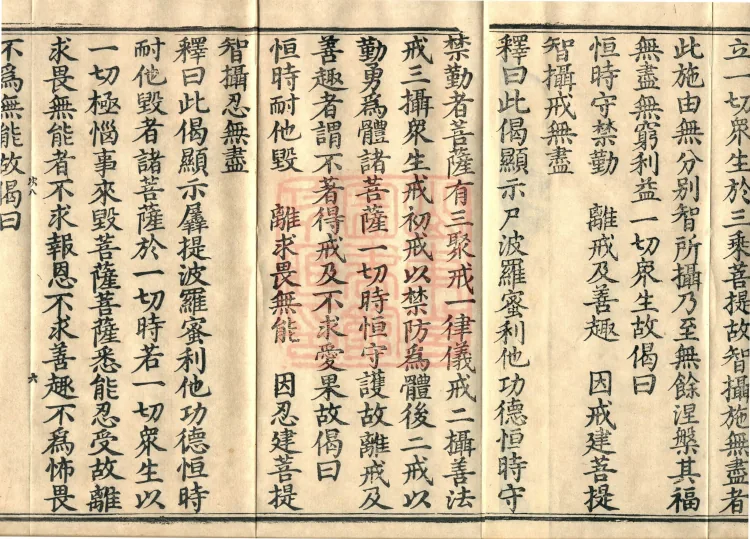 立一切衆生於三乗菩提故智攝施無盡者
此施由無分别智所攝乃至無餘涅槃其福
無盡無窮利益一切衆生故偈曰
恒時守禁勤　離戒及善趣　因戒建菩提
智攝戒無盡
釋曰此偈顯示尸波羅蜜利他功德恒時守
禁勤者菩薩有三聚戒一律儀戒二攝善法
戒三攝衆生戒初戒以禁防爲體後二戒以
勤勇爲體諸菩薩一切時恒守護故離戒及
善趣者謂不著得戒及不求愛果故偈曰
恒時耐他毀　離求畏無能　因忍建菩提
智攝忍無盡
釋曰此偈顯示羼提波羅蜜利他功德恒時
耐他毀者諸菩薩於一切時若一切衆生以
一切極惱事來毀菩薩菩薩悉能忍受故離
求畏無能者不求報恩不求善趣不爲怖畏
六
不爲無能故偈曰